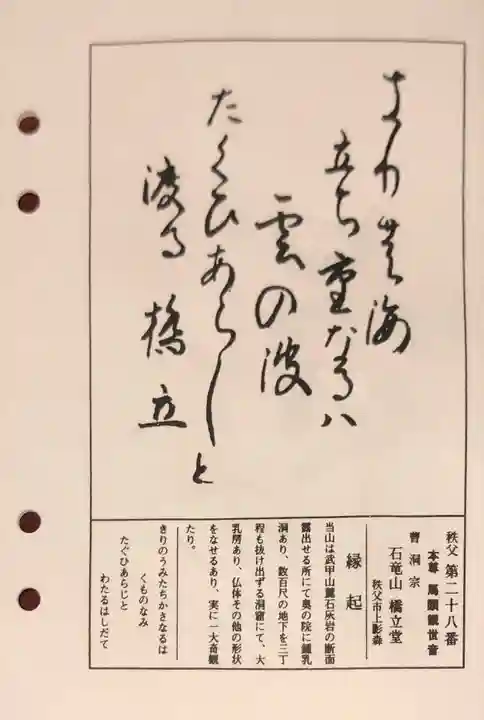 きりの海
立ち重なるハ
雲の波
たくひあらしと
渡る橋立
秩父 第二十八番
本尊 馬頭観世音
曹洞宗
石竜山 橋立堂
秩父市上影森
縁起
当山は武甲山麓石灰岩の断面
露出せる所にて奥の院に鍾乳
洞あり、数百尺の地下を三丁
程も抜け出ずる洞窟にて、大
乳房あり、仏体その他の形状
をなせるあり、実に一大奇観
たり。
きりのうみたちかさなるは
くものなみ
たぐひあらじと
わたるはしだて